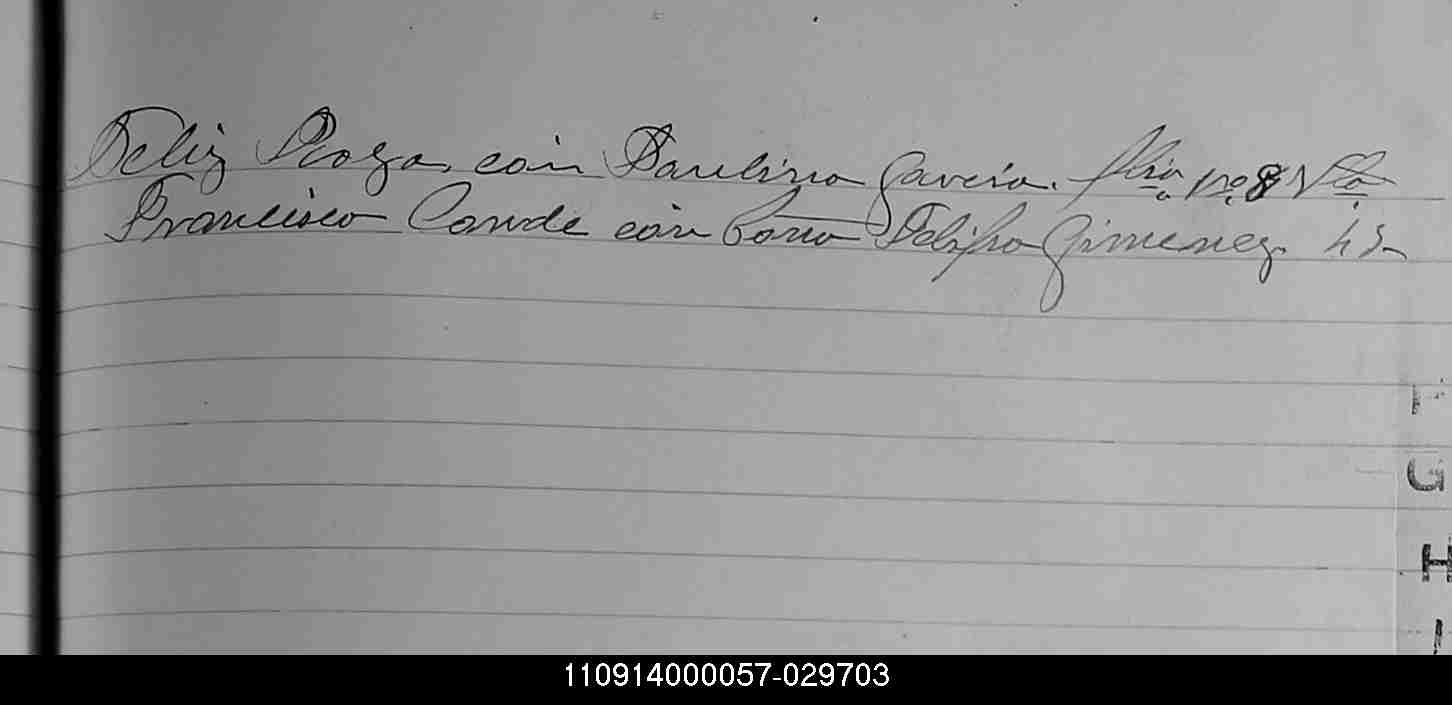 Feliz Plaza con Paulina Garcia. no. 8
Francisco Conde con Felipa Gimenez. 43
F
G
H
I
110914000057-029703